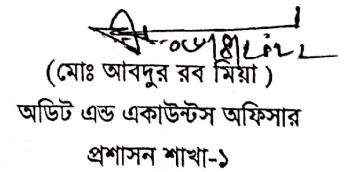 (মোঃ আবদুর রব মিয়া )
অডিট এন্ড একাউন্টস অফিসার
প্রশাসন শাখা-১